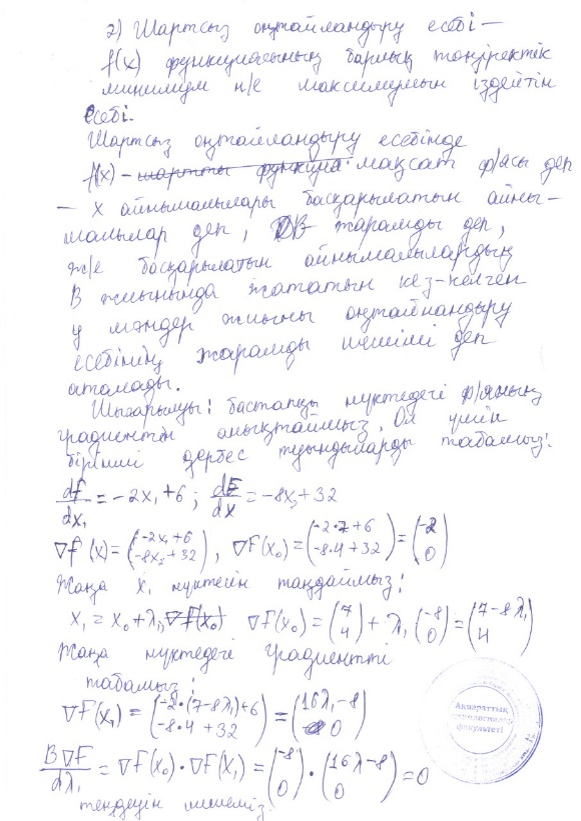 2) Шартсыз оңтайландыру есебі —
f(x) функциясының барлық төңіректік
минимум н/е максимумын іздейтін
есебі.
Шартсыз оңтайландыру есебінде
f(x) – шартты функция мақсат ф/ясы деп
– x айнымалылары басқарылатын айны–
малылар деп, D жарамды деп,
ж/е басқарылатын айнымалылардың
В жиынында жататын кез-келген
у мәндер жиыны оңтайландыру
есебінің жарамды шешімі деп
аталады.
Шығарылуы: бастапқы нүктедегі ф/яның
градиентін анықтаймыз. Ол үшін
бірінші дербес туындыларды табамыз:
df/dx₁ = -2x₁+6 ; dF/dx = -8x₂+32
∇f(x) = (-2x₁+6 -8x₂+32), ∇F(x₀) = (-2·7+6 -8·4+32) = (-2 0)
Жаңа x₁ нүктесін таңдаймыз:
x₁ = x₀+λ₁∇f(x₀) ∇F(x₀) = (7 4) + λ₁(-8 0) = (7-8λ₁ 4)
Жаңа нүктедегі градиентті
табамыз:
∇F(x₁) = (-2·(7-8λ₁)+6 -8·4+32) = (16λ₁-8 0)
B∇F/dλ₁ = ∇F(x₀)·∇F(x₁) = (-8 0)·(16λ-8 0) = 0
теңдеуін шешеміз.
Ақпараттық
технологиялар
факультеті